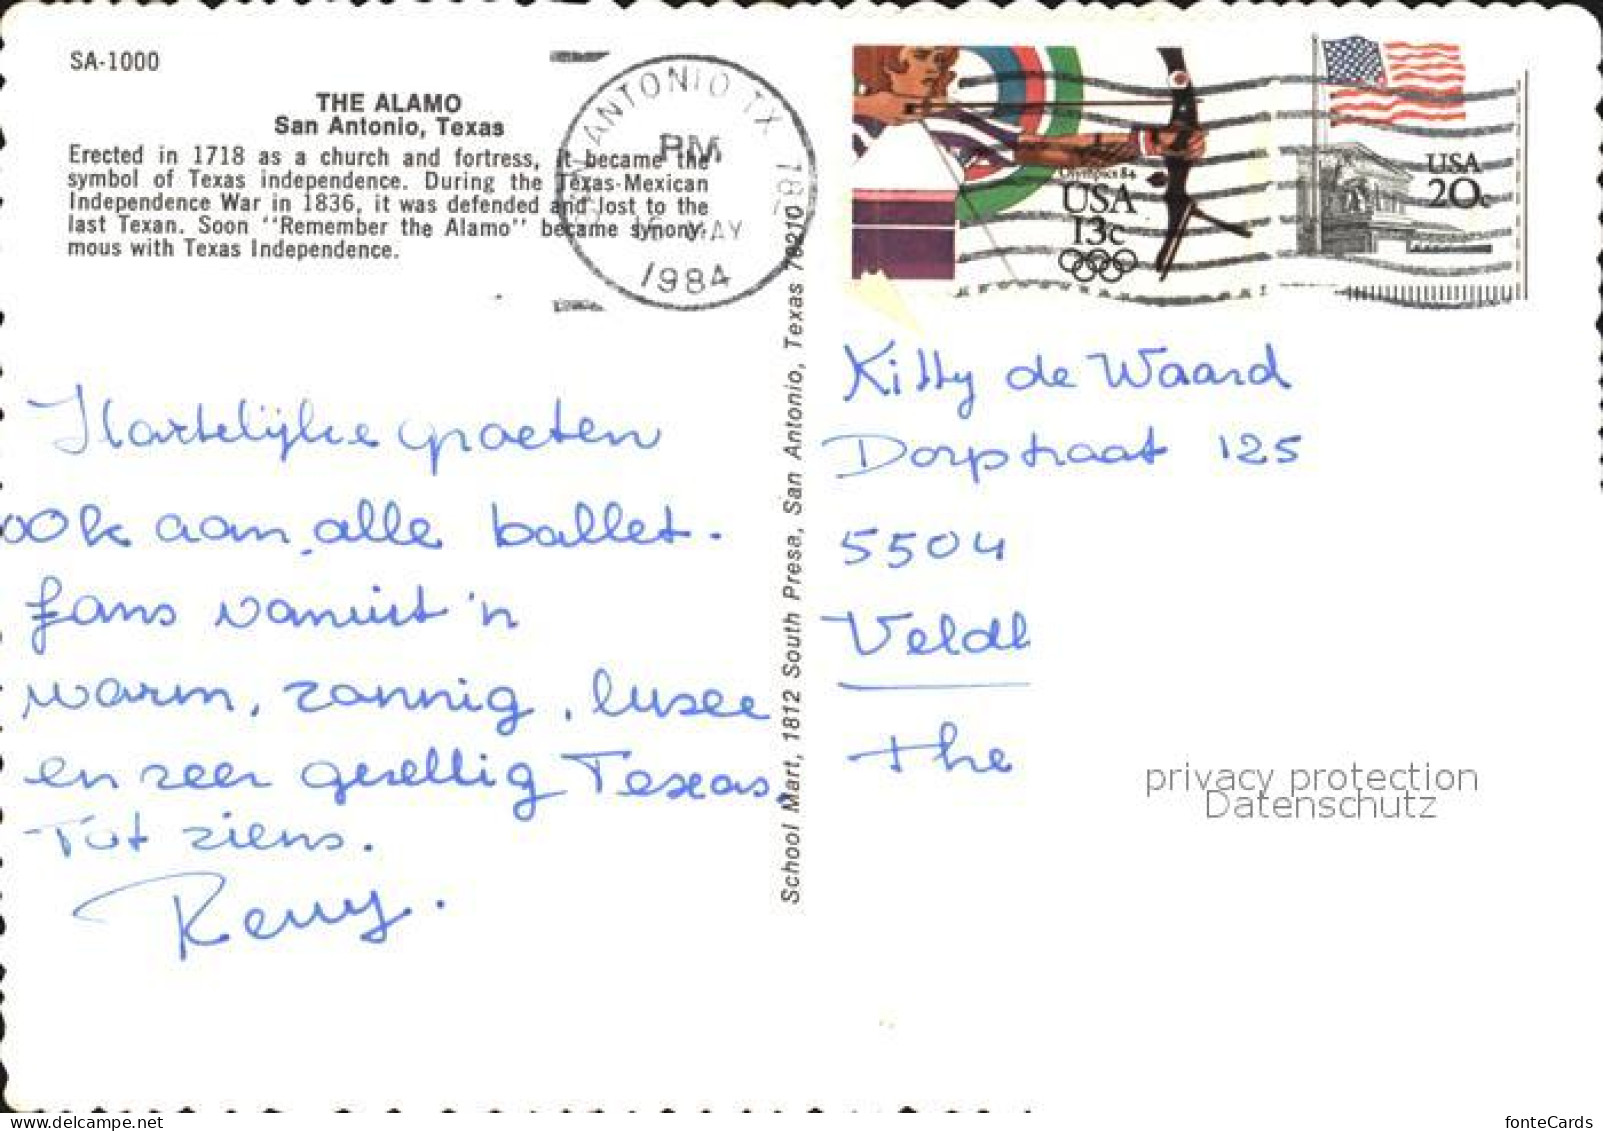 SA-1000
THE ALAMO
San Antonio, Texas
Erected in 1718 as a church and fortress, it became the
symbol of Texas independence. During the Texas-Mexican
Independence War in 1836, it was defended and lost to the
last Texan. Soon "Remember the Alamo" became synony-
mous with Texas Independence.
ANTONIO TX 782
PM
16 MAY
1984
Olympics 84
USA
13c
USA
20c
Hartelijke groeten
ook aan alle ballet-
fans vanuit 'n
warm, zonnig, luxe
en zeer gezellig Texas.
Tot ziens.
School Mart, 1812 South Presa, San Antonio, Texas 78210
Kitty de Waard
Dorpstraat 125
5504
Veldh
the
privacy protection
Datenschutz
www.delcampe.net
fonteCards